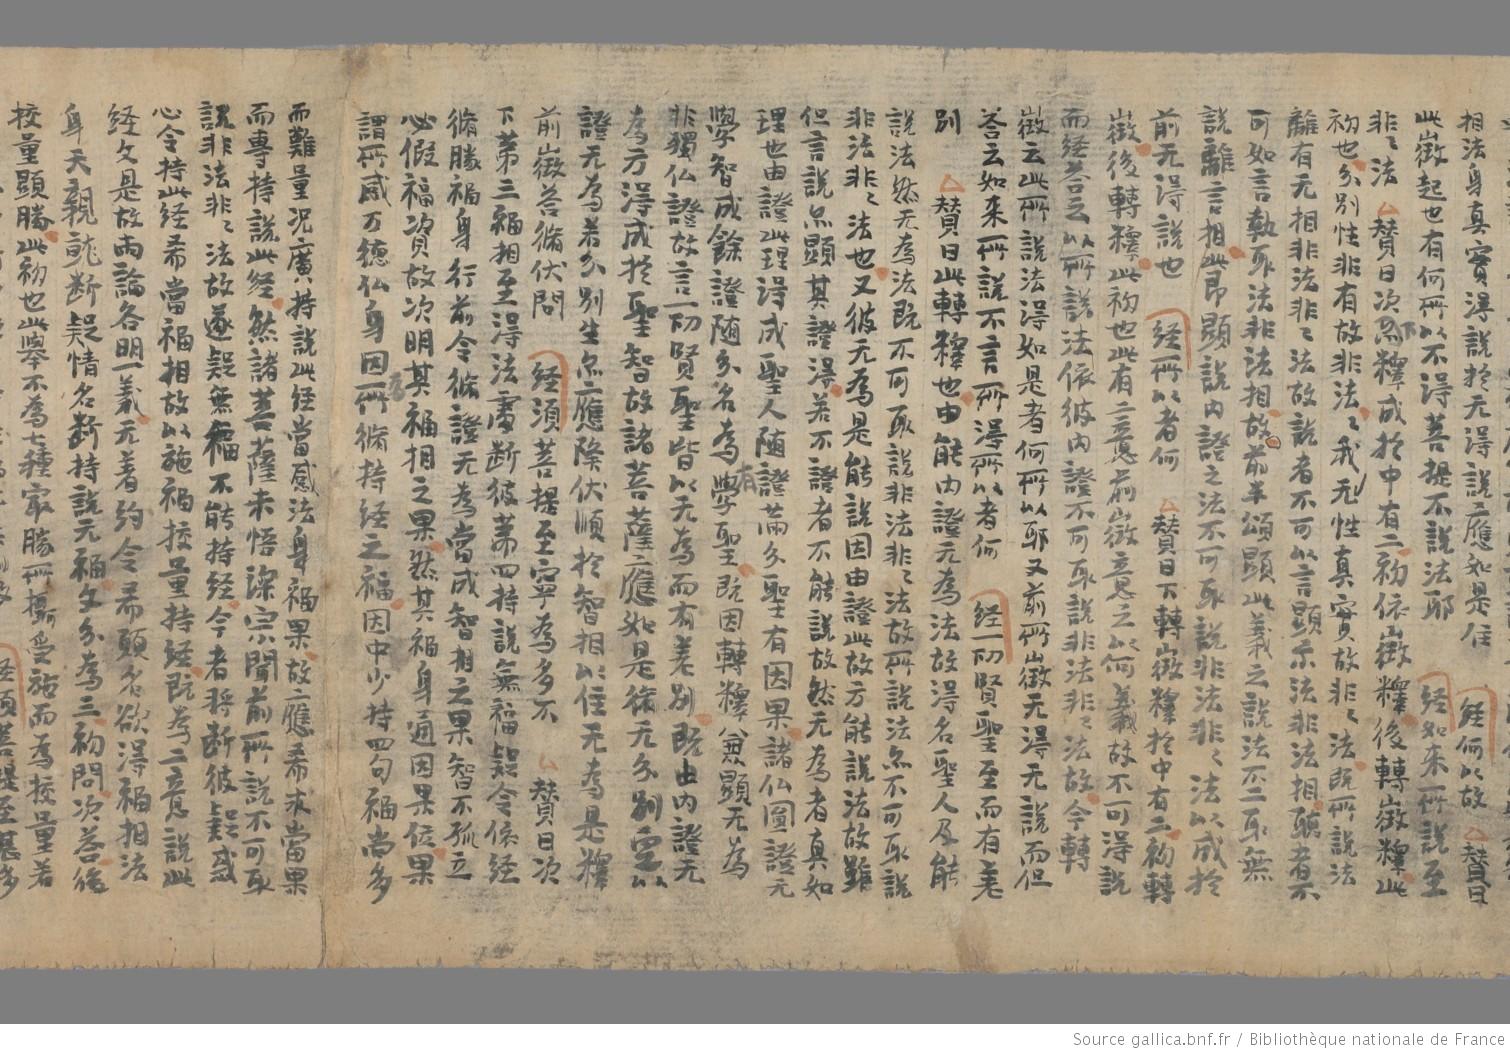 相法身真實得說於无得說應如是住 經何以故 賛曰
此徵起也有何所以不得菩提不說法耶 經如來所說至
非〻法 賛曰次下釋成於中有二初依徵釋後轉徵釋此
初也分別性非有故非法〻我无性真實故非〻法既所說法
離有无相非法非〻法故說者不可以言顯示法非法相聽者不
可如言執取法非法相故前半頌顯此義之說法不二取無
說離言相此即顯說內證之法不可取說非法非〻法以成於
前无得說也 經所以者何 賛曰下轉徵釋於中有二初轉
徵後轉釋此初也此有二意前徵意云以何義故不可得說
而經答云以所說法依彼內證不可取說非法非〻法故今轉
徵云此所說法得如是者何所以耶又前所徵无得无說而但
答云如來所說不言所得所以者何 經一切賢聖至而有差
別 賛曰此轉釋也由能內證无為法故得名聖人及能
說法然无為法既不可取說非法非〻法故所說法亦不可取說
非法非〻法也又彼无為是能說因由證此故方能說法故雖
但言說亦顯其證得若不證者不能說故然无為者真如
理也由證此理得成聖人隨證滿分聖有因果諸仏圓證无
學智成餘證隨分名為有學聖既因轉釋兼顯无為
非獨仏證故言一切賢聖皆以无為而有差別既由內證无
為方得成於聖智故諸菩薩應如是脩无分別定以
證无為若分別生亦應降伏順於智相以住无為是釋
前徵答脩伏問 經須菩提至寧為多不 賛曰次
下第三福相至得法身處斷彼第四持說無福疑令依經
脩勝福身行前令脩證无為當成智相之果智不孤立
必假福資故次明其福相之果然其福身通因果位果
謂所感万德仏身因所脩持經之福因中少持四句福尚多
而難量況廣持說此經當感法身福果故應希求當果
而專持說此經然諸菩薩未悟深宗聞前所說不可取
說非法非〻法故遂疑無福不能持經今者將斷彼疑惑
心令持此經希當福相故以施福挍量持經既為二意說此
經文是故兩論各明一義无著約令希願名欲得福相法
身天親就斷疑情名斷持說无福文分為三初問次答後
挍量顯勝此初也此舉不為七種最勝所攝受施而為挍量若
經須菩提至甚多